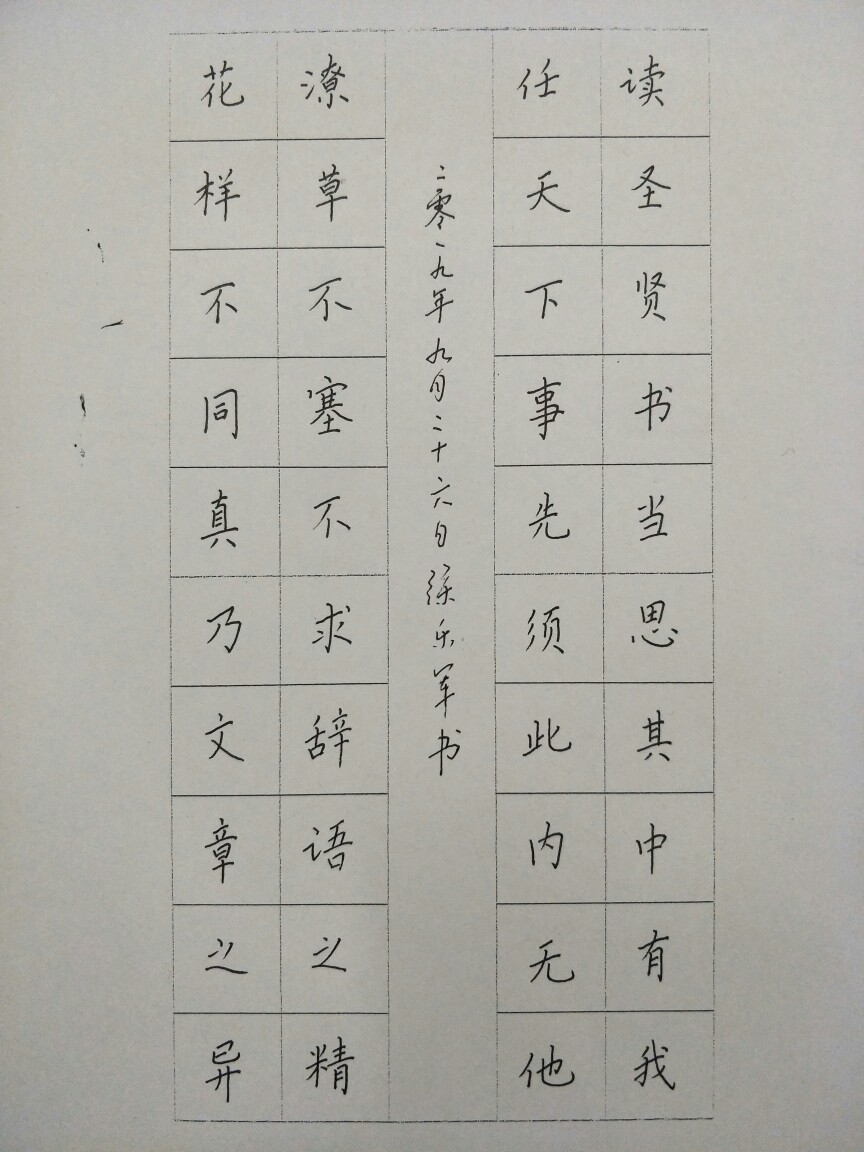 读圣贤书当思其中有我
任天下事先须此内无他
二零一九年九月二十六日 乐军书
潦草不塞不求辞语之精
花样不同真乃文章之异